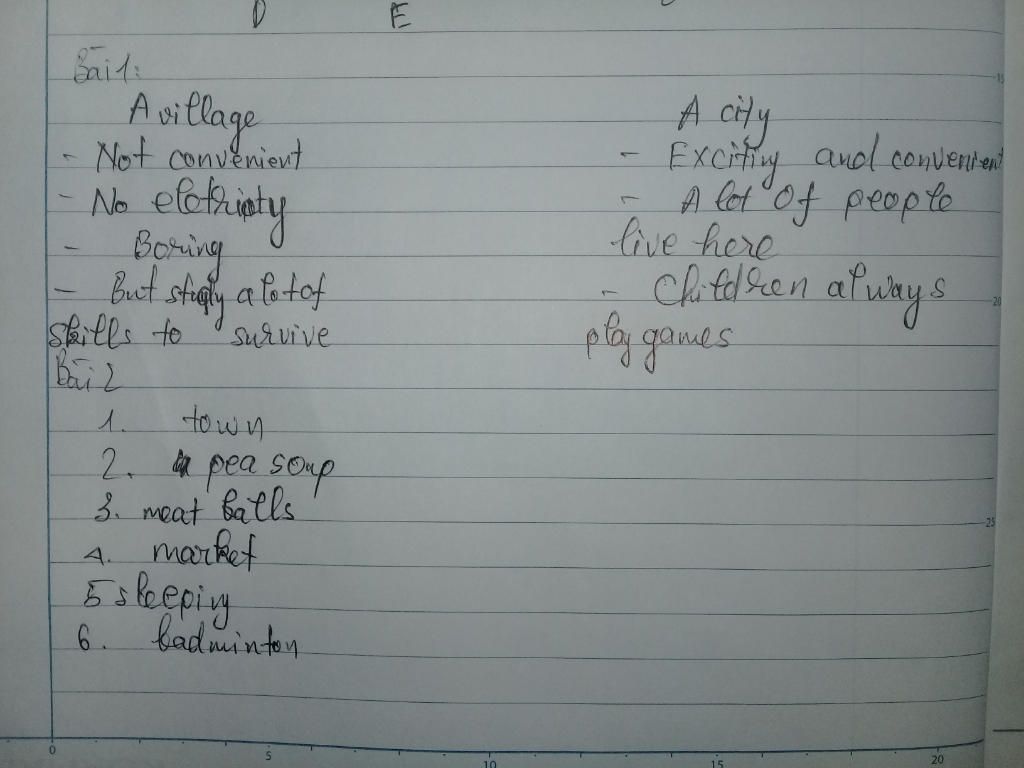 D E
Bài 1:
A village
- Not convenient
- No eletricity
- Boring
- But study a lot of
skills to survive
A city
- Exciting and convenient
- A lot Of people
live here
- Children always
play games
Bài 2
1. town
2. pea soup
3. meat balls
4. market
5 sleeping
6. badminton
15
20
25
0 5 10 15 20